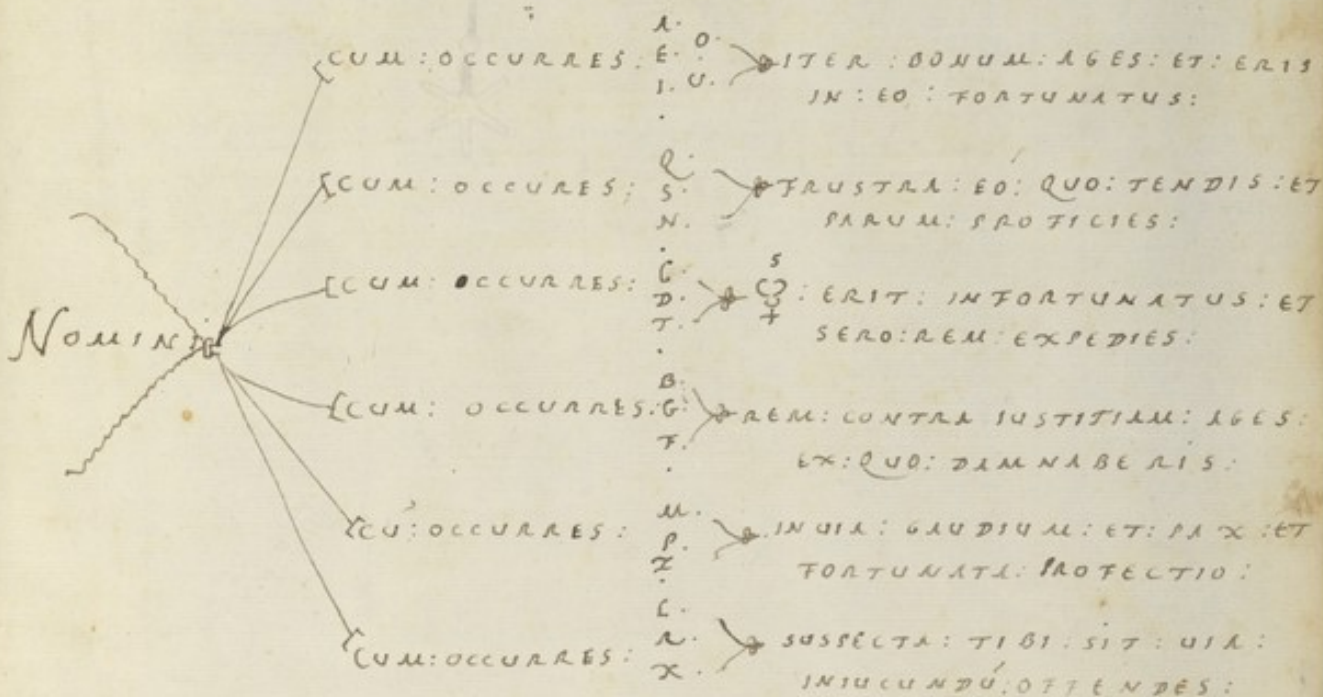 A.
CUM: OCCURRES: E. O. ITER: BONUM: AGES: ET: ERIS
I. U. IN: EO: FORTUNATUS:
Q.
CUM: OCCURES: S. FRUSTRA: EO: QUO: TENDIS: ET
N. PARUM: PROFICIES:
C. S
CUM: OCCURRES: D. ☿: ERIT: INFORTUNATUS: ET
T. SERO: REM: EXPEDIES:
NOMINI
B.
CUM: OCCURRES: G. REM: CONTRA IUSTITIAM: AGES:
F. EX: QUO: DAMNABERIS:
M.
CŪ: OCCURRES: P. IN UIA: GAUDIUM: ET: PAX: ET
Z. FORTUNATA: PROFECTIO:
L.
CUM: OCCURRES: R. SUSPECTA: TIBI: SIT: UIA:
X. INIUCUNDŪ: OFFENDES: